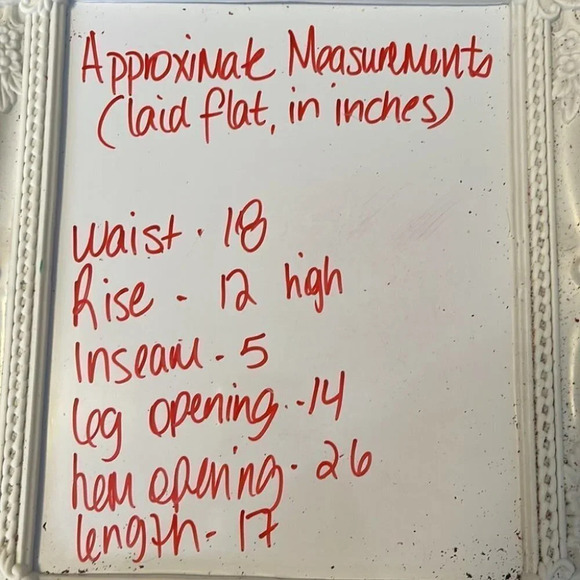 Approximate Measurements
(laid flat, in inches)
waist - 18
Rise - 12 high
Inseam - 5
leg opening - 14
hem opening - 26
length - 17